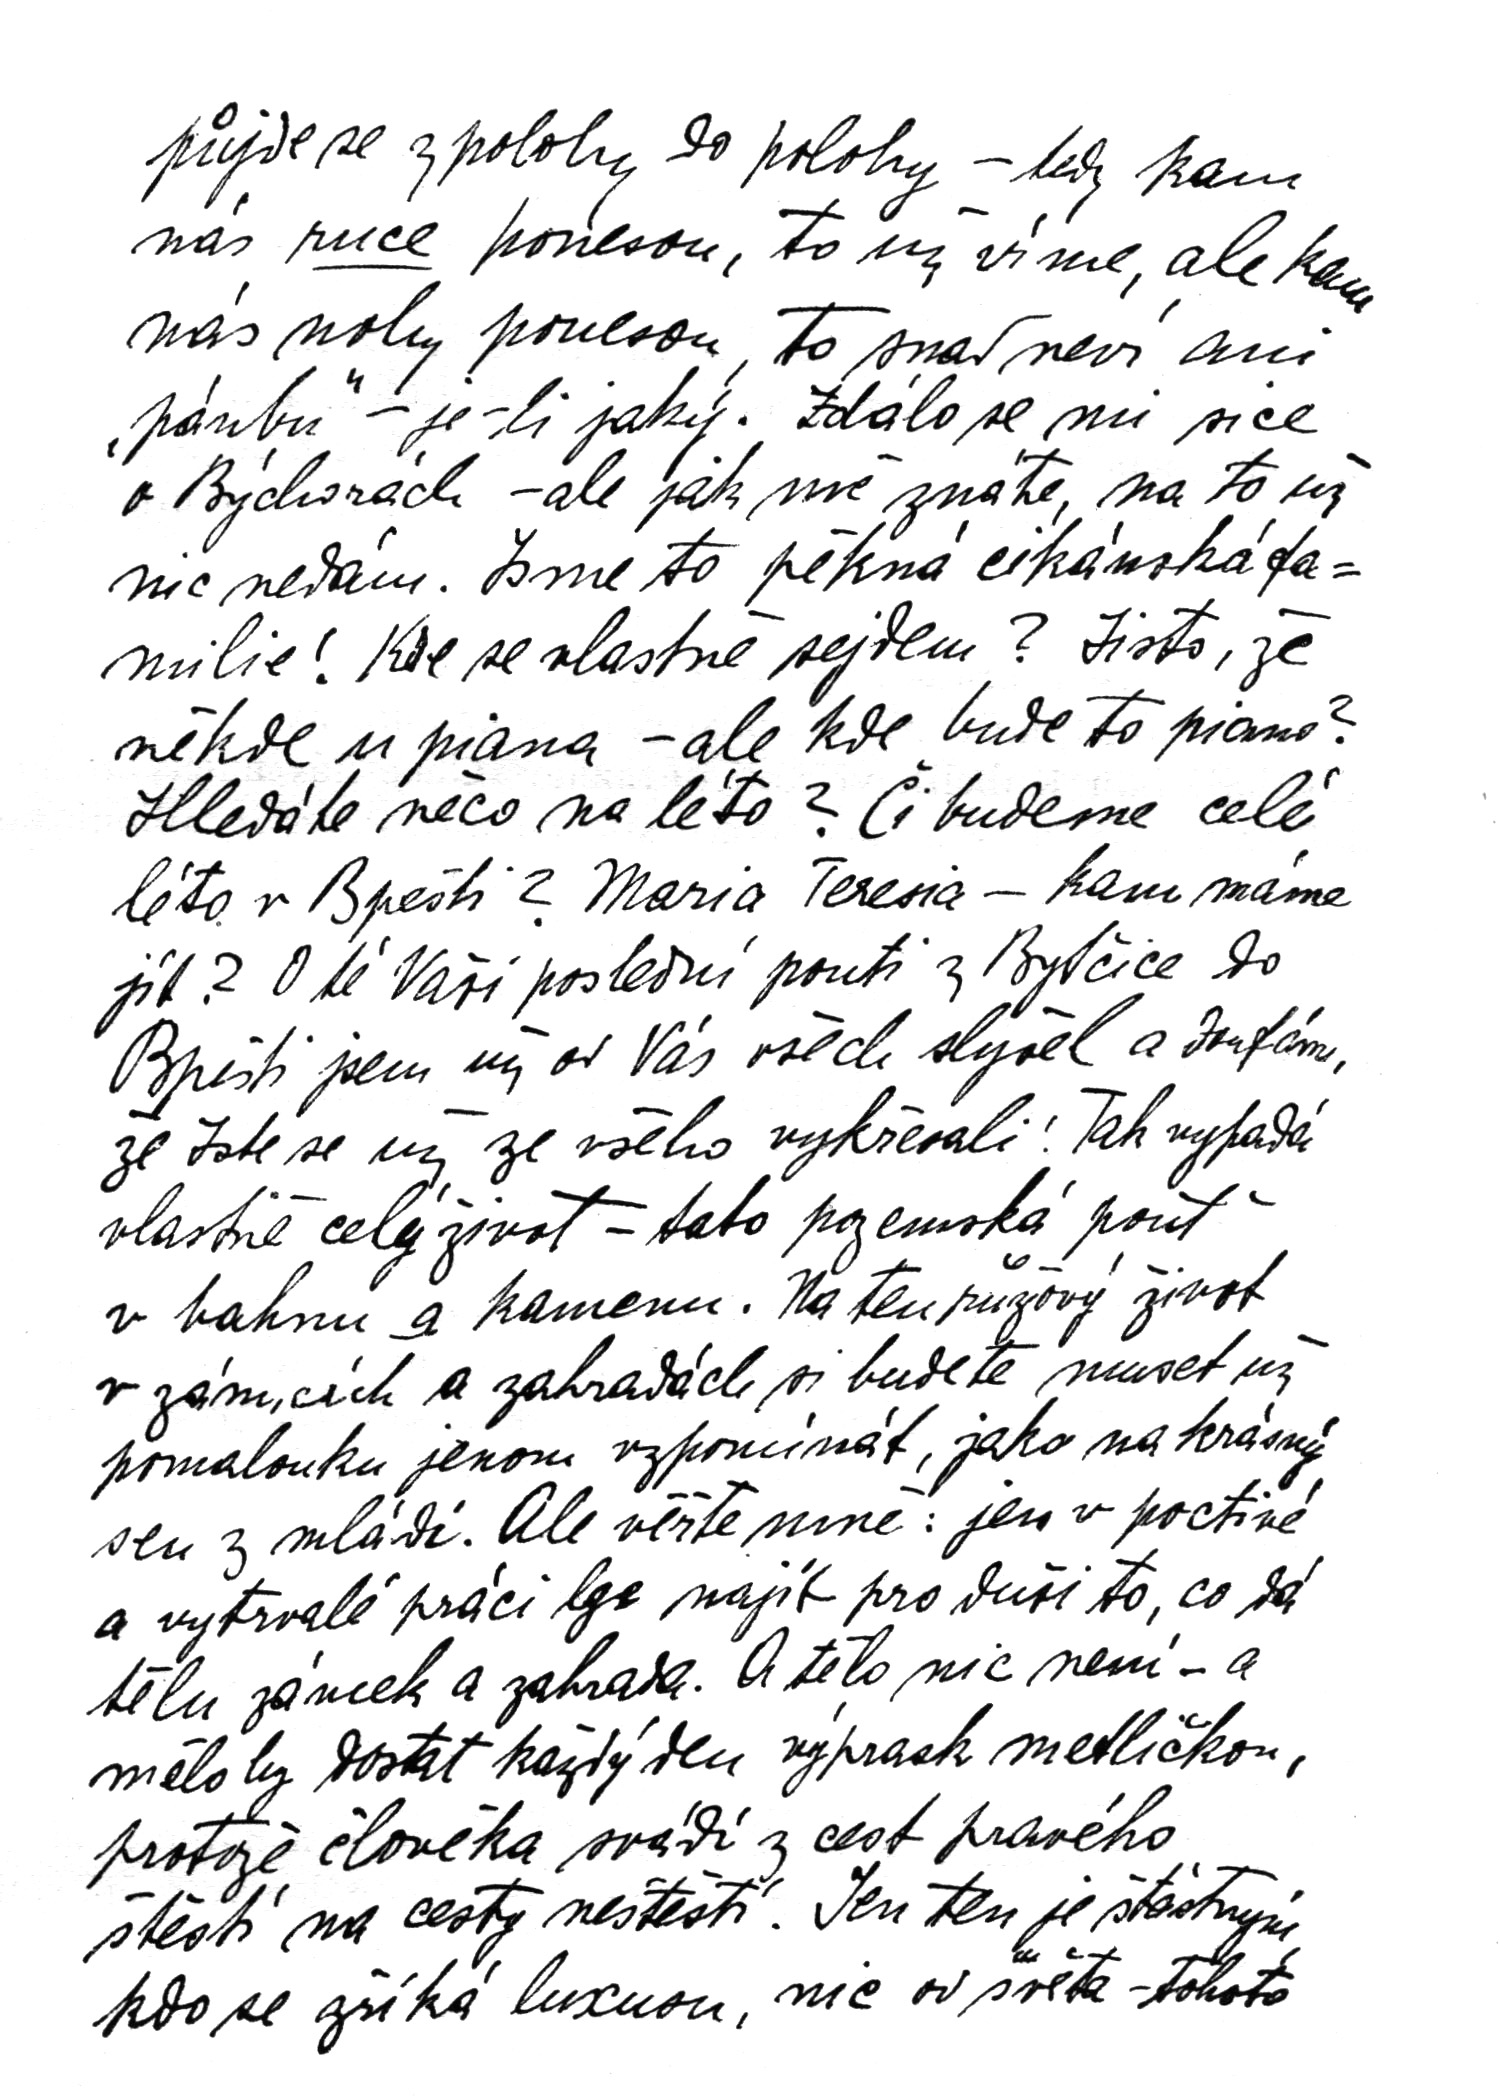 půjde se z polohy do polohy – tedy kam
nás ruce ponesou, to už víme, ale kam
nás nohy ponesou, to snad neví ani
„pánbu" – je-li jaký. Zdálo se mi sice
o Býchorách – ale jak mě znáte, na to už
nic nedám. Jsme to pěkná cikánská fa=
milie! Kde se vlastně sejdem? Jisto, že
někde u piana – ale kde bude to piano?
Hledáte něco na léto? Či budeme celé
léto v Bpešti? Maria Teresia – kam máme
jít? O té Vaší poslední pouti z Bytčice do
Bpešti jsem už od Vás všech slyšel a doufám,
že Jste se už ze všeho vykřesali! Tak vypadá
vlastně celý život – tato pozemská pouť
v bahnu a kamenu. Na ten růžový život
v zámcích a zahradách si budete muset už
pomalouku jenom vzpomínat, jako na krásný
sen z mládí. Ale věřte mně: jen v poctivé
a vytrvalé práci lze najít pro duši to, co dá
tělu zámek a zahrada. A tělo nic není – a
mělo by dostat každý den výprask metličkou,
protože člověka svádí z cest pravého
štěstí na cesty neštěstí. Jen ten je šťastným,
kdo se zříká luxusu, nic od světa – tohoto